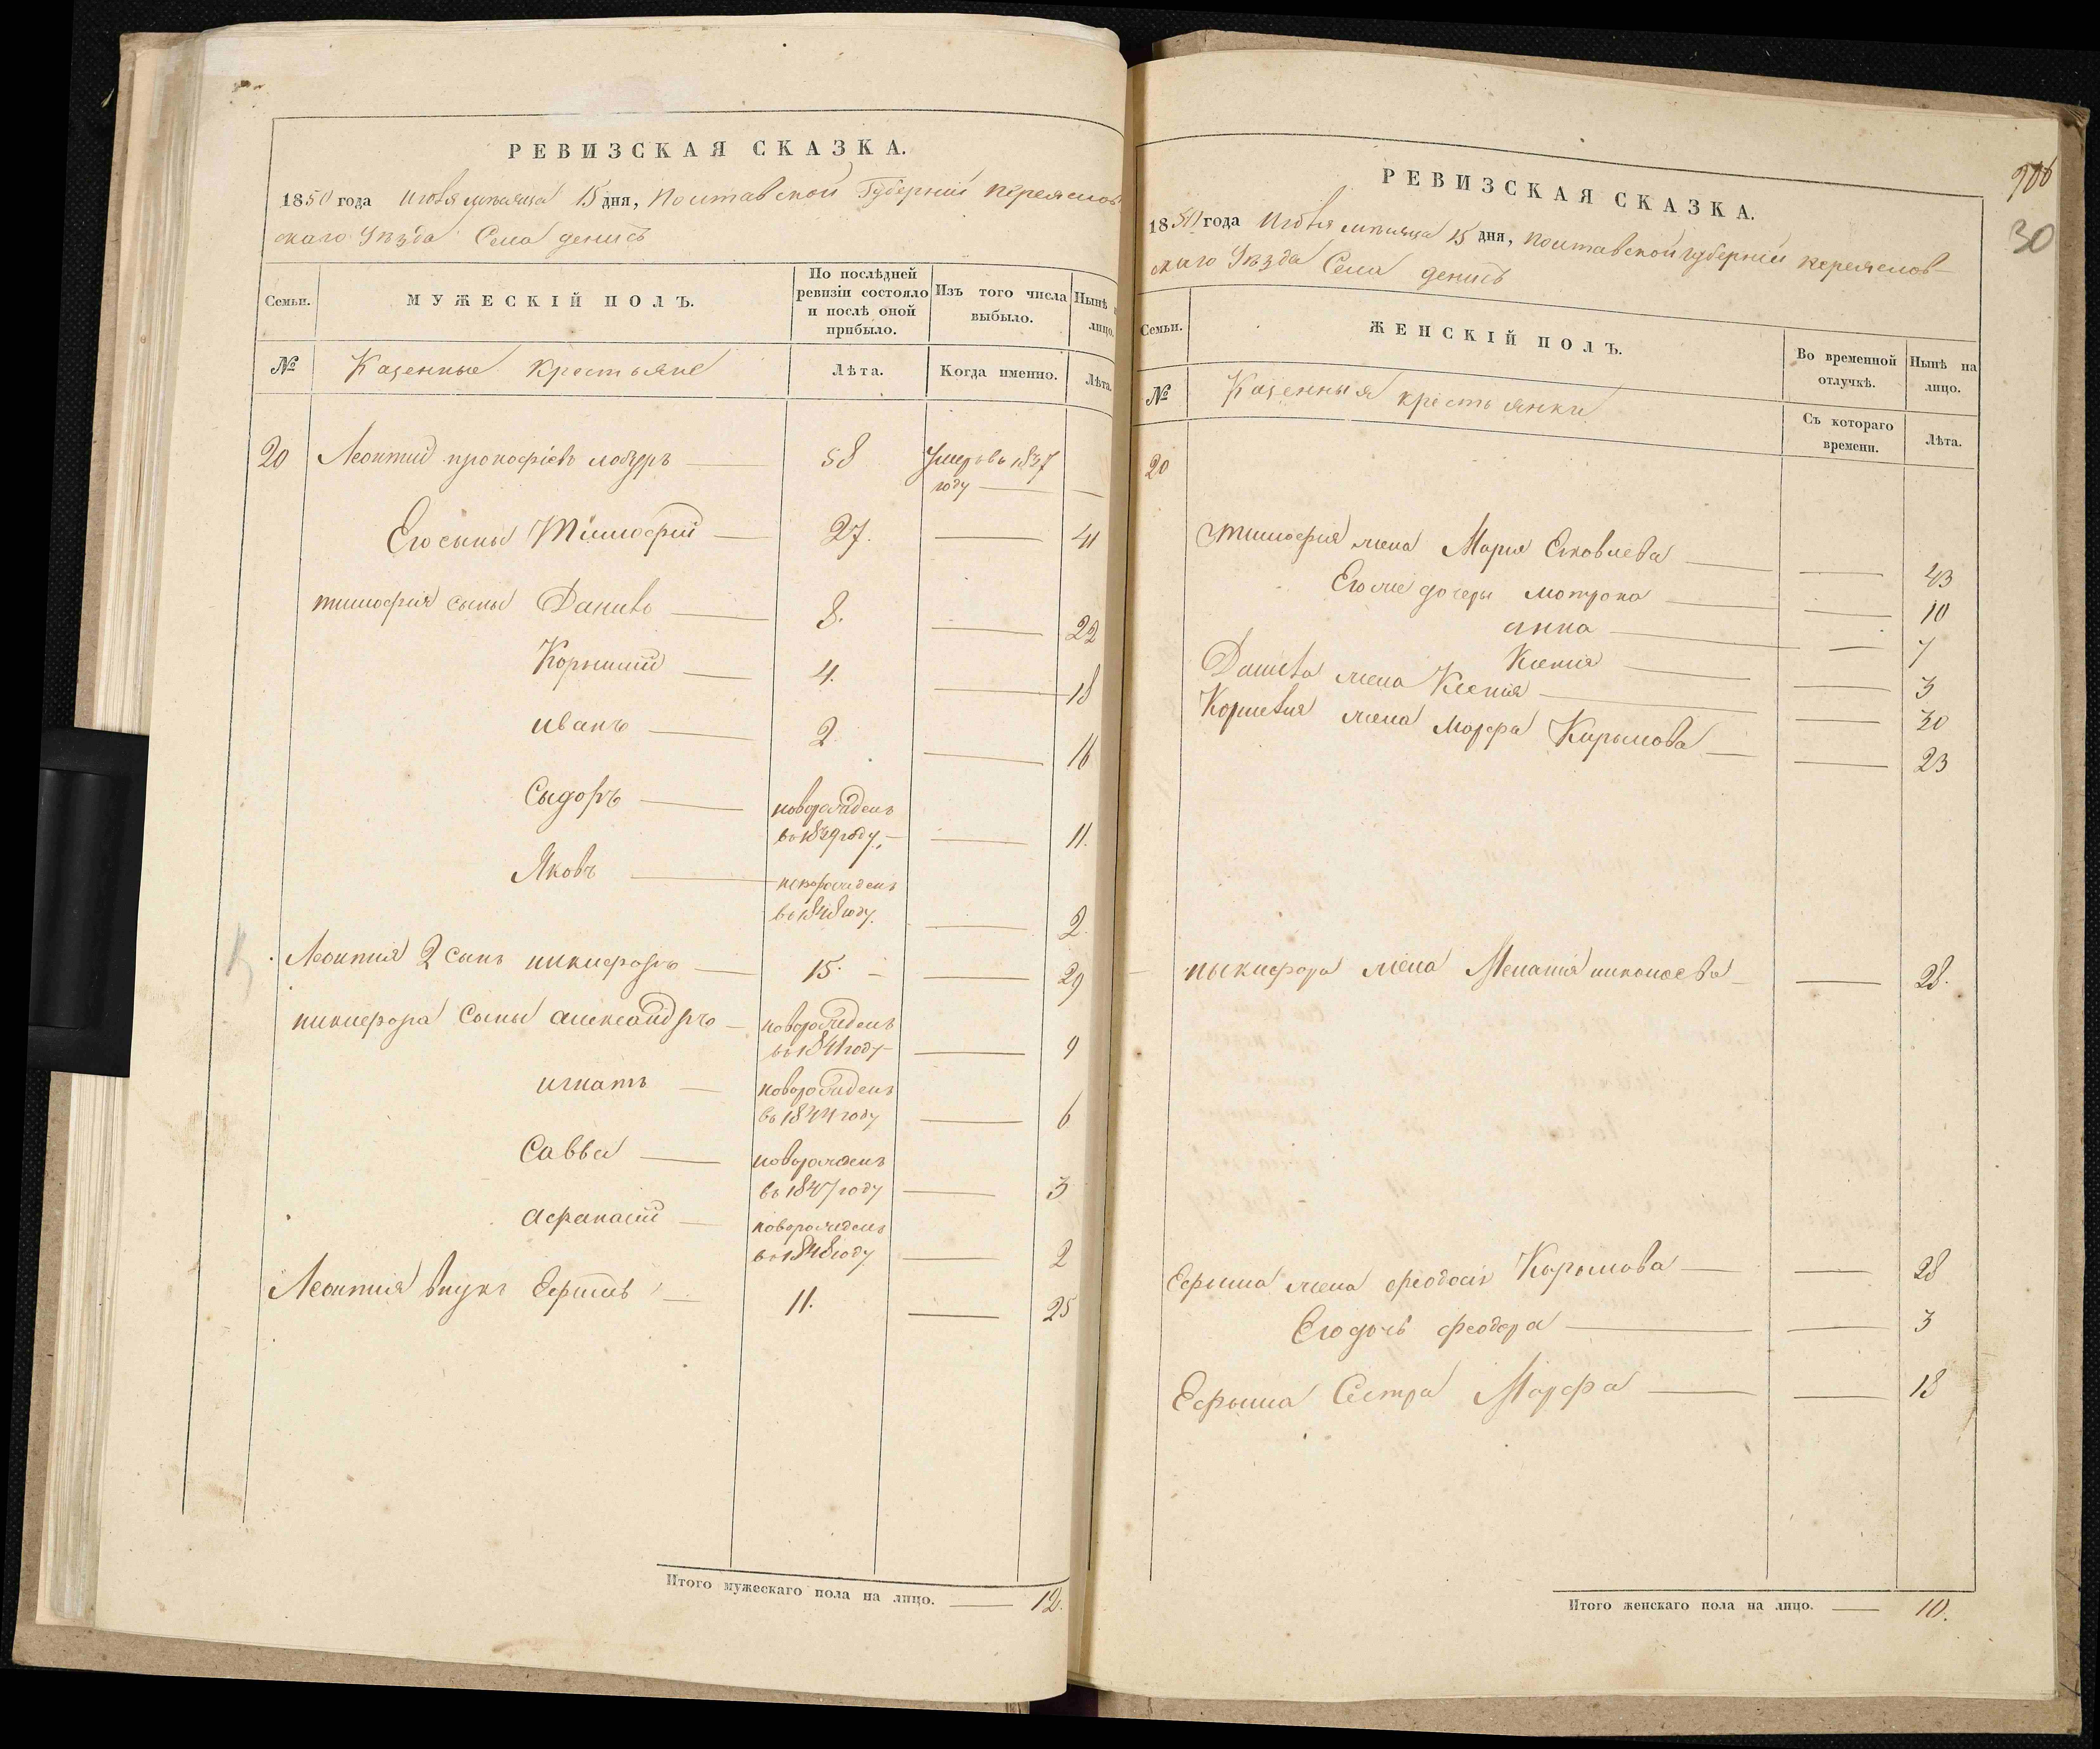 РЕВИЗСКАЯ СКАЗКА.
1850 года Июня месяца 15 дня, Полтавской Губернии Переяслов
скаго Уѣзда Села Денисъ
Семьи.
МУЖЕСКІЙ ПОЛЪ.
По послѣдней ревизіи состояло и послѣ оной прибыло.
Изъ того числа выбыло.
Нынѣ лицо.
№
Казенные Крестьяне
Лѣта.
Когда именно.
Лѣта.
20 Леонтий прокофіевъ 58 Умеръ въ 1837
году
Его сыны Тимофій 27. 41
тимофия сыны Данило 8. 22
Корнилий 4. 18
иванъ 2. 16
Сыдоръ новорожденъ
въ 1839 году 11.
Яковъ новорожденъ
въ 1848 году. 2.
Леонтия 2 сынъ никифоръ 15. 29
никифора Сыны александръ новорожденъ
въ 1841 году 9
игнатъ новорожденъ
въ 1844 году 6
Савва новорожденъ
въ 1847 году 3
афанасий новорожденъ
въ 1848 году 2
Леонтия внукъ Ефимъ 11. 25
Итого мужескаго пола на лицо. 12.
906
30
РЕВИЗСКАЯ СКАЗКА.
1850 года Июня месяца 15 дня, Полтавской губерніи переяслов
скаго Уѣзда Села Денисъ
Семьи.
ЖЕНСКІЙ ПОЛЪ.
Во временной отлучкѣ.
Нынѣ на лицо.
№
Казенныя крестьянки
Съ котораго времени.
Лѣта.
20
тимофия жена Мария Яковлева 43
Его же дочеры мотрона 10
анна 7
Ксения 3
Данила жена Ксения 30
Корнелия жена Марфа Кирилова 23
ныкифора жена Мелания николаева 28.
Ефыма жена феодосія Карпова 28
Его дочь феодора 3
Ефыма Сестра Марфа 18
Итого женскаго пола на лицо. 10.